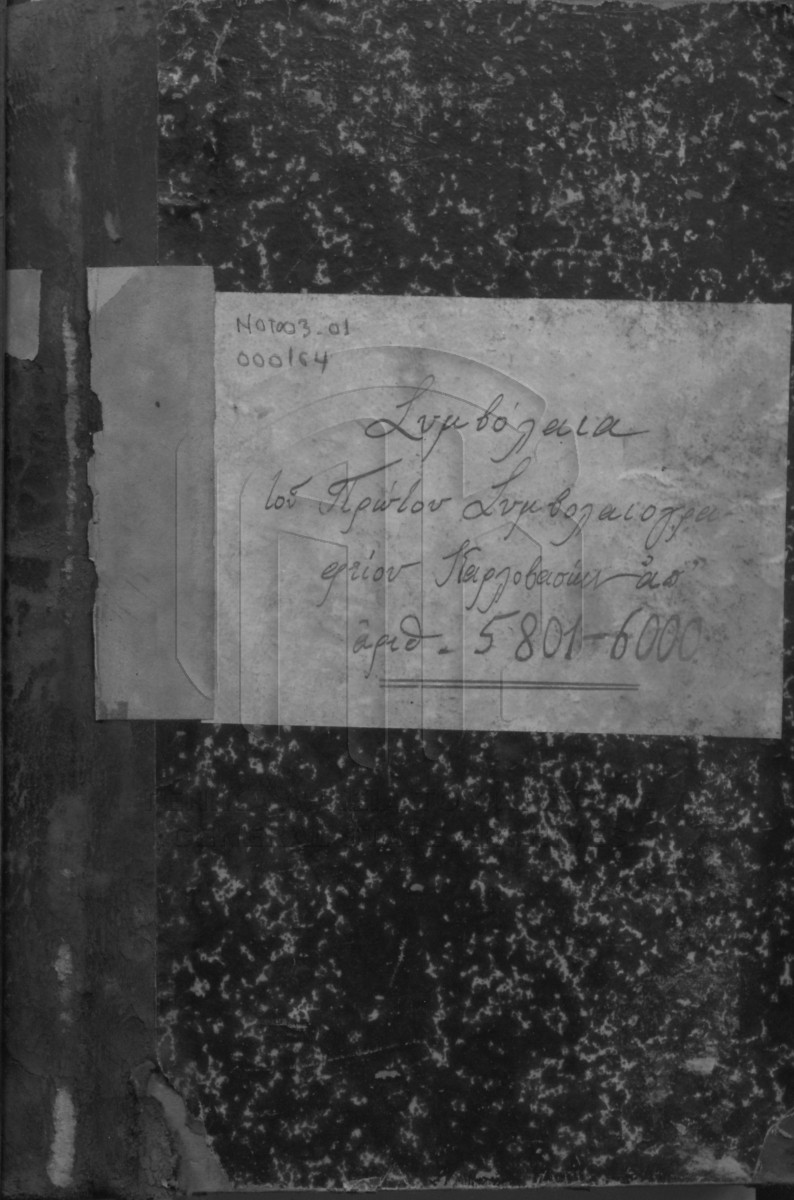 ΝΟΤ003_01
000164
Συμβόλαια
τοῦ Πρώτου Συμβολαιογρα
φείου Καρλοβασίων ἀπ
ἀριθ. 5801-6000